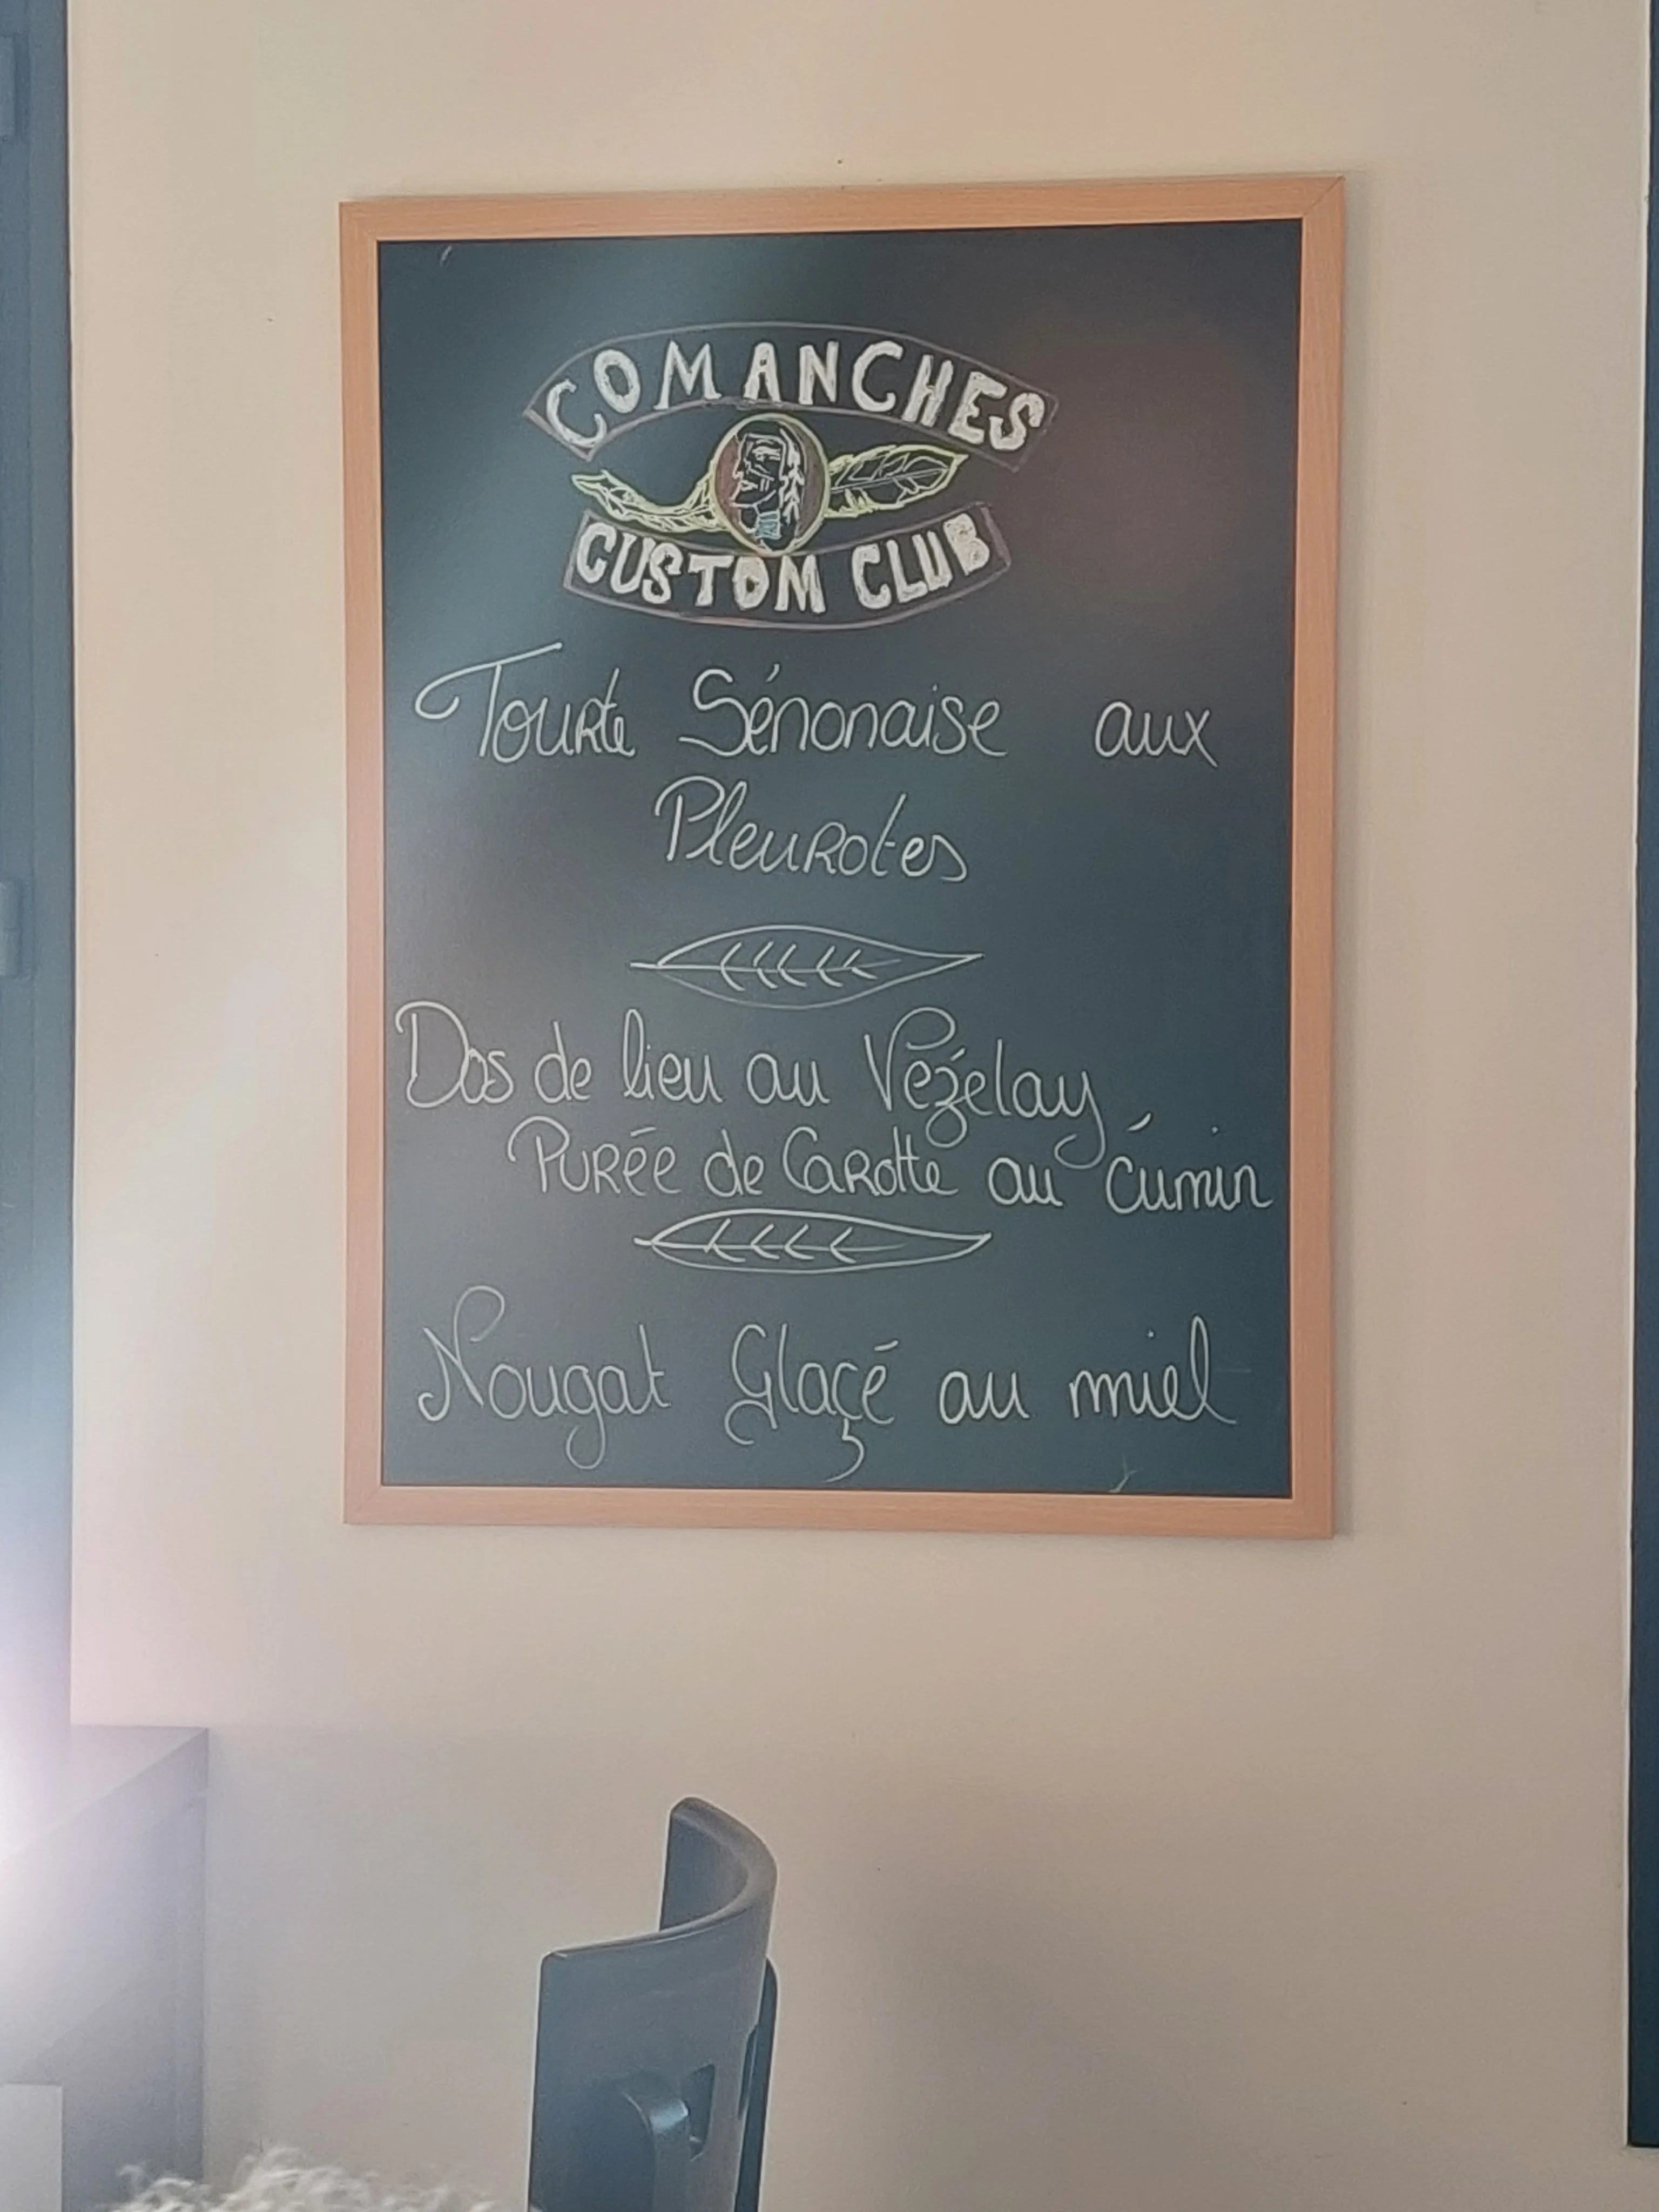 COMANCHES
CUSTOM CLUB
Tourte Sénonaise aux
Pleurotes
Dos de lieu au Vézelay
Purée de Carotte au Cumin
Nougat Glaçé au miel